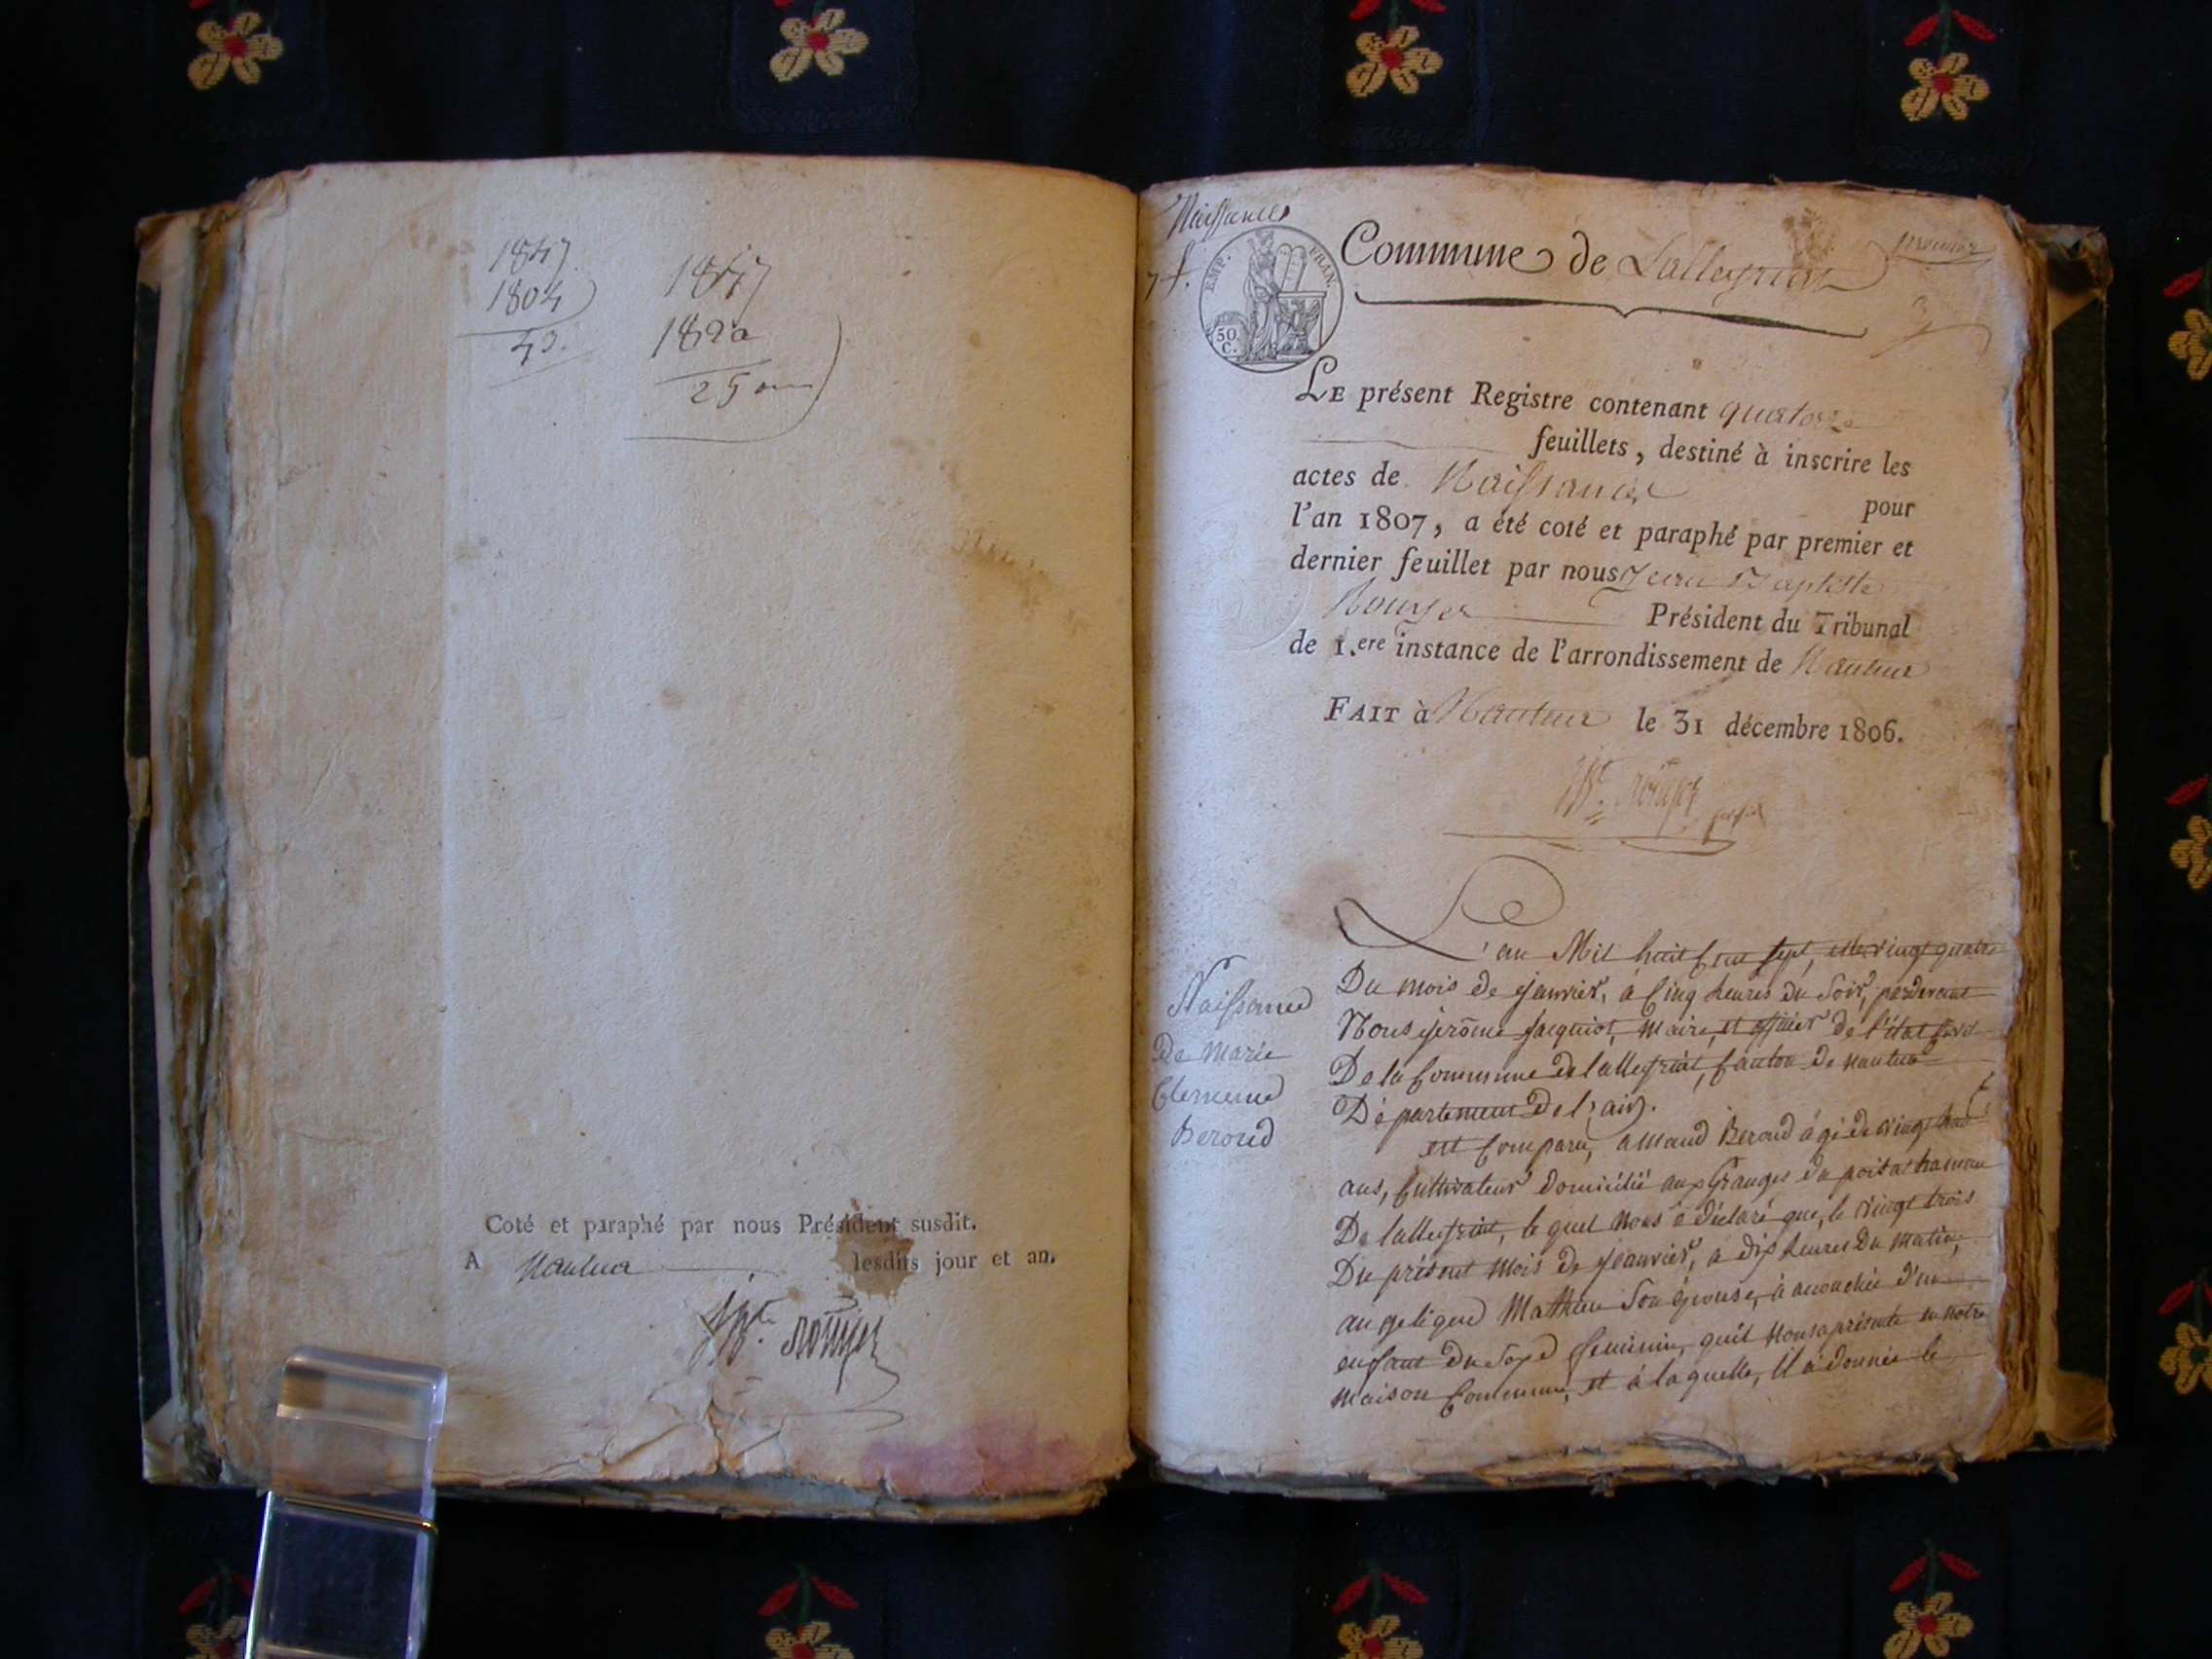 1847
1804
43.
1847
1822
25 ans
Coté et paraphé par nous Président susdit.
A Nantua lesdits jour et an.
JBte. rouyer
Naissances
EMP. FRAN.
50 C.
Commune de Lalleyriat
premier
LE présent Registre contenant quatorze
feuillets, destiné à inscrire les
actes de Naissances pour
l'an 1807, a été coté et paraphé par premier et
dernier feuillet par nous Jean Baptiste
Rouyer Président du Tribunal
de 1.ere instance de l'arrondissement de Nantua
FAIT à Nantua le 31 décembre 1806.
JBte. rouyer
Naissance
De Marie
Clemence
Beroud
L'an Mil huit Cent sept, et le vingt quatre
Du mois de janvier, à Cinq heures du Soir, pardevant
Nous jerôme jacquiot, maire, et officier de l'état Civil
De la Commune de lalleyriat, Canton de nantua
Département de l'ain.
est Comparu, amand Beroud âgé de vingt huit
ans, Cultivateur domicilié aux Granges du poizat hameau
De lalleyriat, lequel Nous à déclaré que, le vingt trois
Du présent mois de jeanvier, à dix heures du matin,
angelique Mathieu Son épouse, à accouchée d'un
enfant du Sexe feminin, quil nous a présenté en notre
maison Commune, et à laquelle, il à donnée le